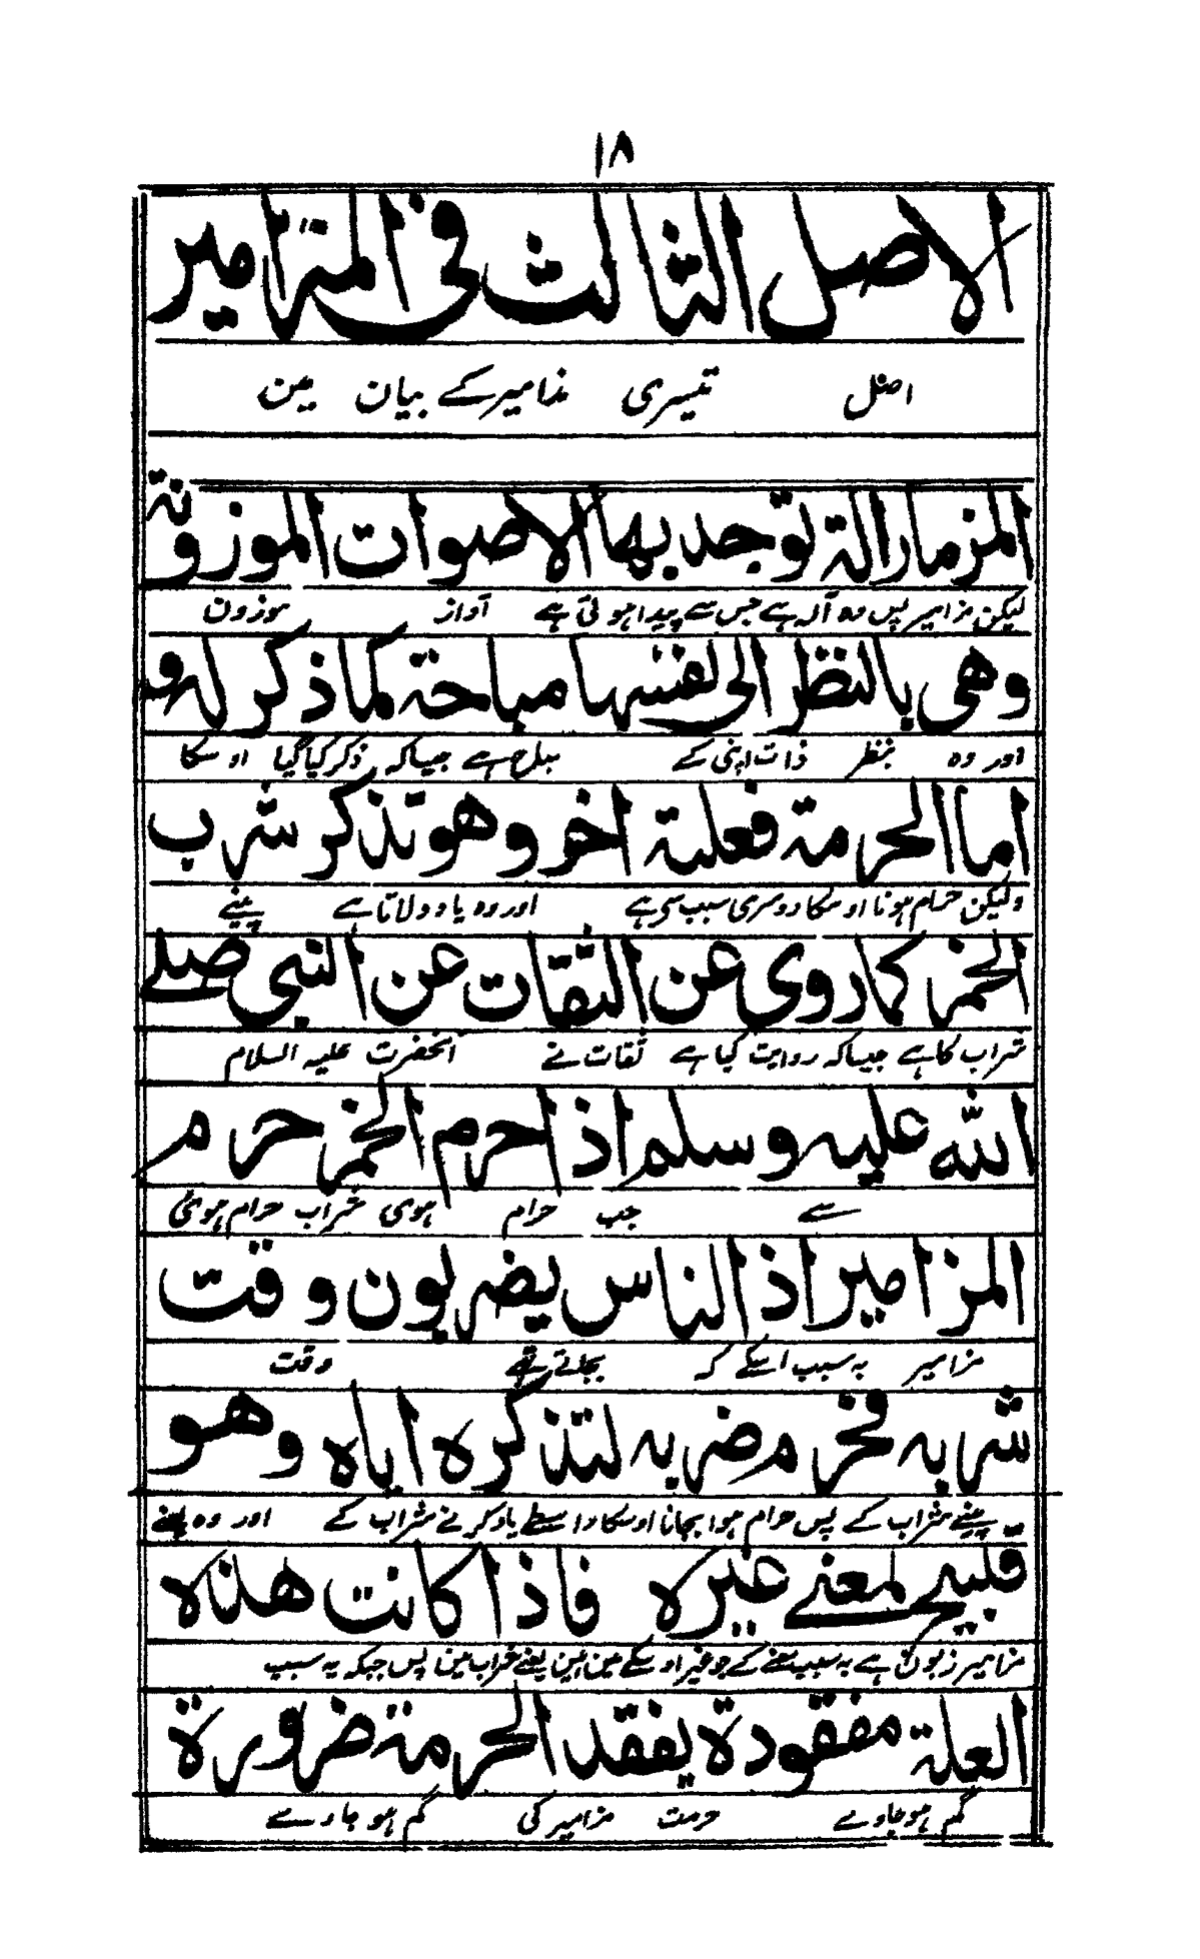 ١٨
الاصل الثالث فی المزامیر
اصل تیسری مذامیر کے بیان مین
المزمار الة توجد بها الاصوات الموزونة
لیکن مزامیر پس وہ آلہ ہے جس سے پیدا ہوتی ہے آواز موزون
وهی بالنظر الی نفسها مباحة کما ذکر له و
اور وہ بنظر ذات اپنی کے مباح ہے جیسا کہ ذکر کیا گیا اوسکا
اما الحرمة فعلیة اخر وهو تذکر شرب
ولیکن حرام ہونا اوسکا دوسری سبب سی ہے اور وہ یاد دلاتا ہے پینے
الخمر کما روی عن الثقات عن النبی صلے
شراب کا ہے جیسا کہ روایت کیا ہے ثقات نے آنحضرت علیہ السلام
الله علیه وسلم اذا حرم الخمر حرم
سے جب حرام ہوی شراب حرام ہوئی
المزامیر اذ الناس یضربون وقت
مزامیر بہ سبب اسکے کہ بجاتے تھے وقت
شربه فحرم ضربه لتذکره ایاه وهو
پینے شراب کے پس حرام ہوا بجانا اوسکا واسطے یاد کرنے شراب کے اور وہ یعنے
قبیح لمعنے غیره فاذا کانت هذه
مزامیر زبون ہے بہ سبب معنے کے جو غیر اوسکے مین ہین یعنے شراب مین پس جبکہ یہ سبب
العلة مفقودة یفقد الحرمة ضرورة
گم ہو جاوے حرمت مزامیر کی گم ہو جاوے